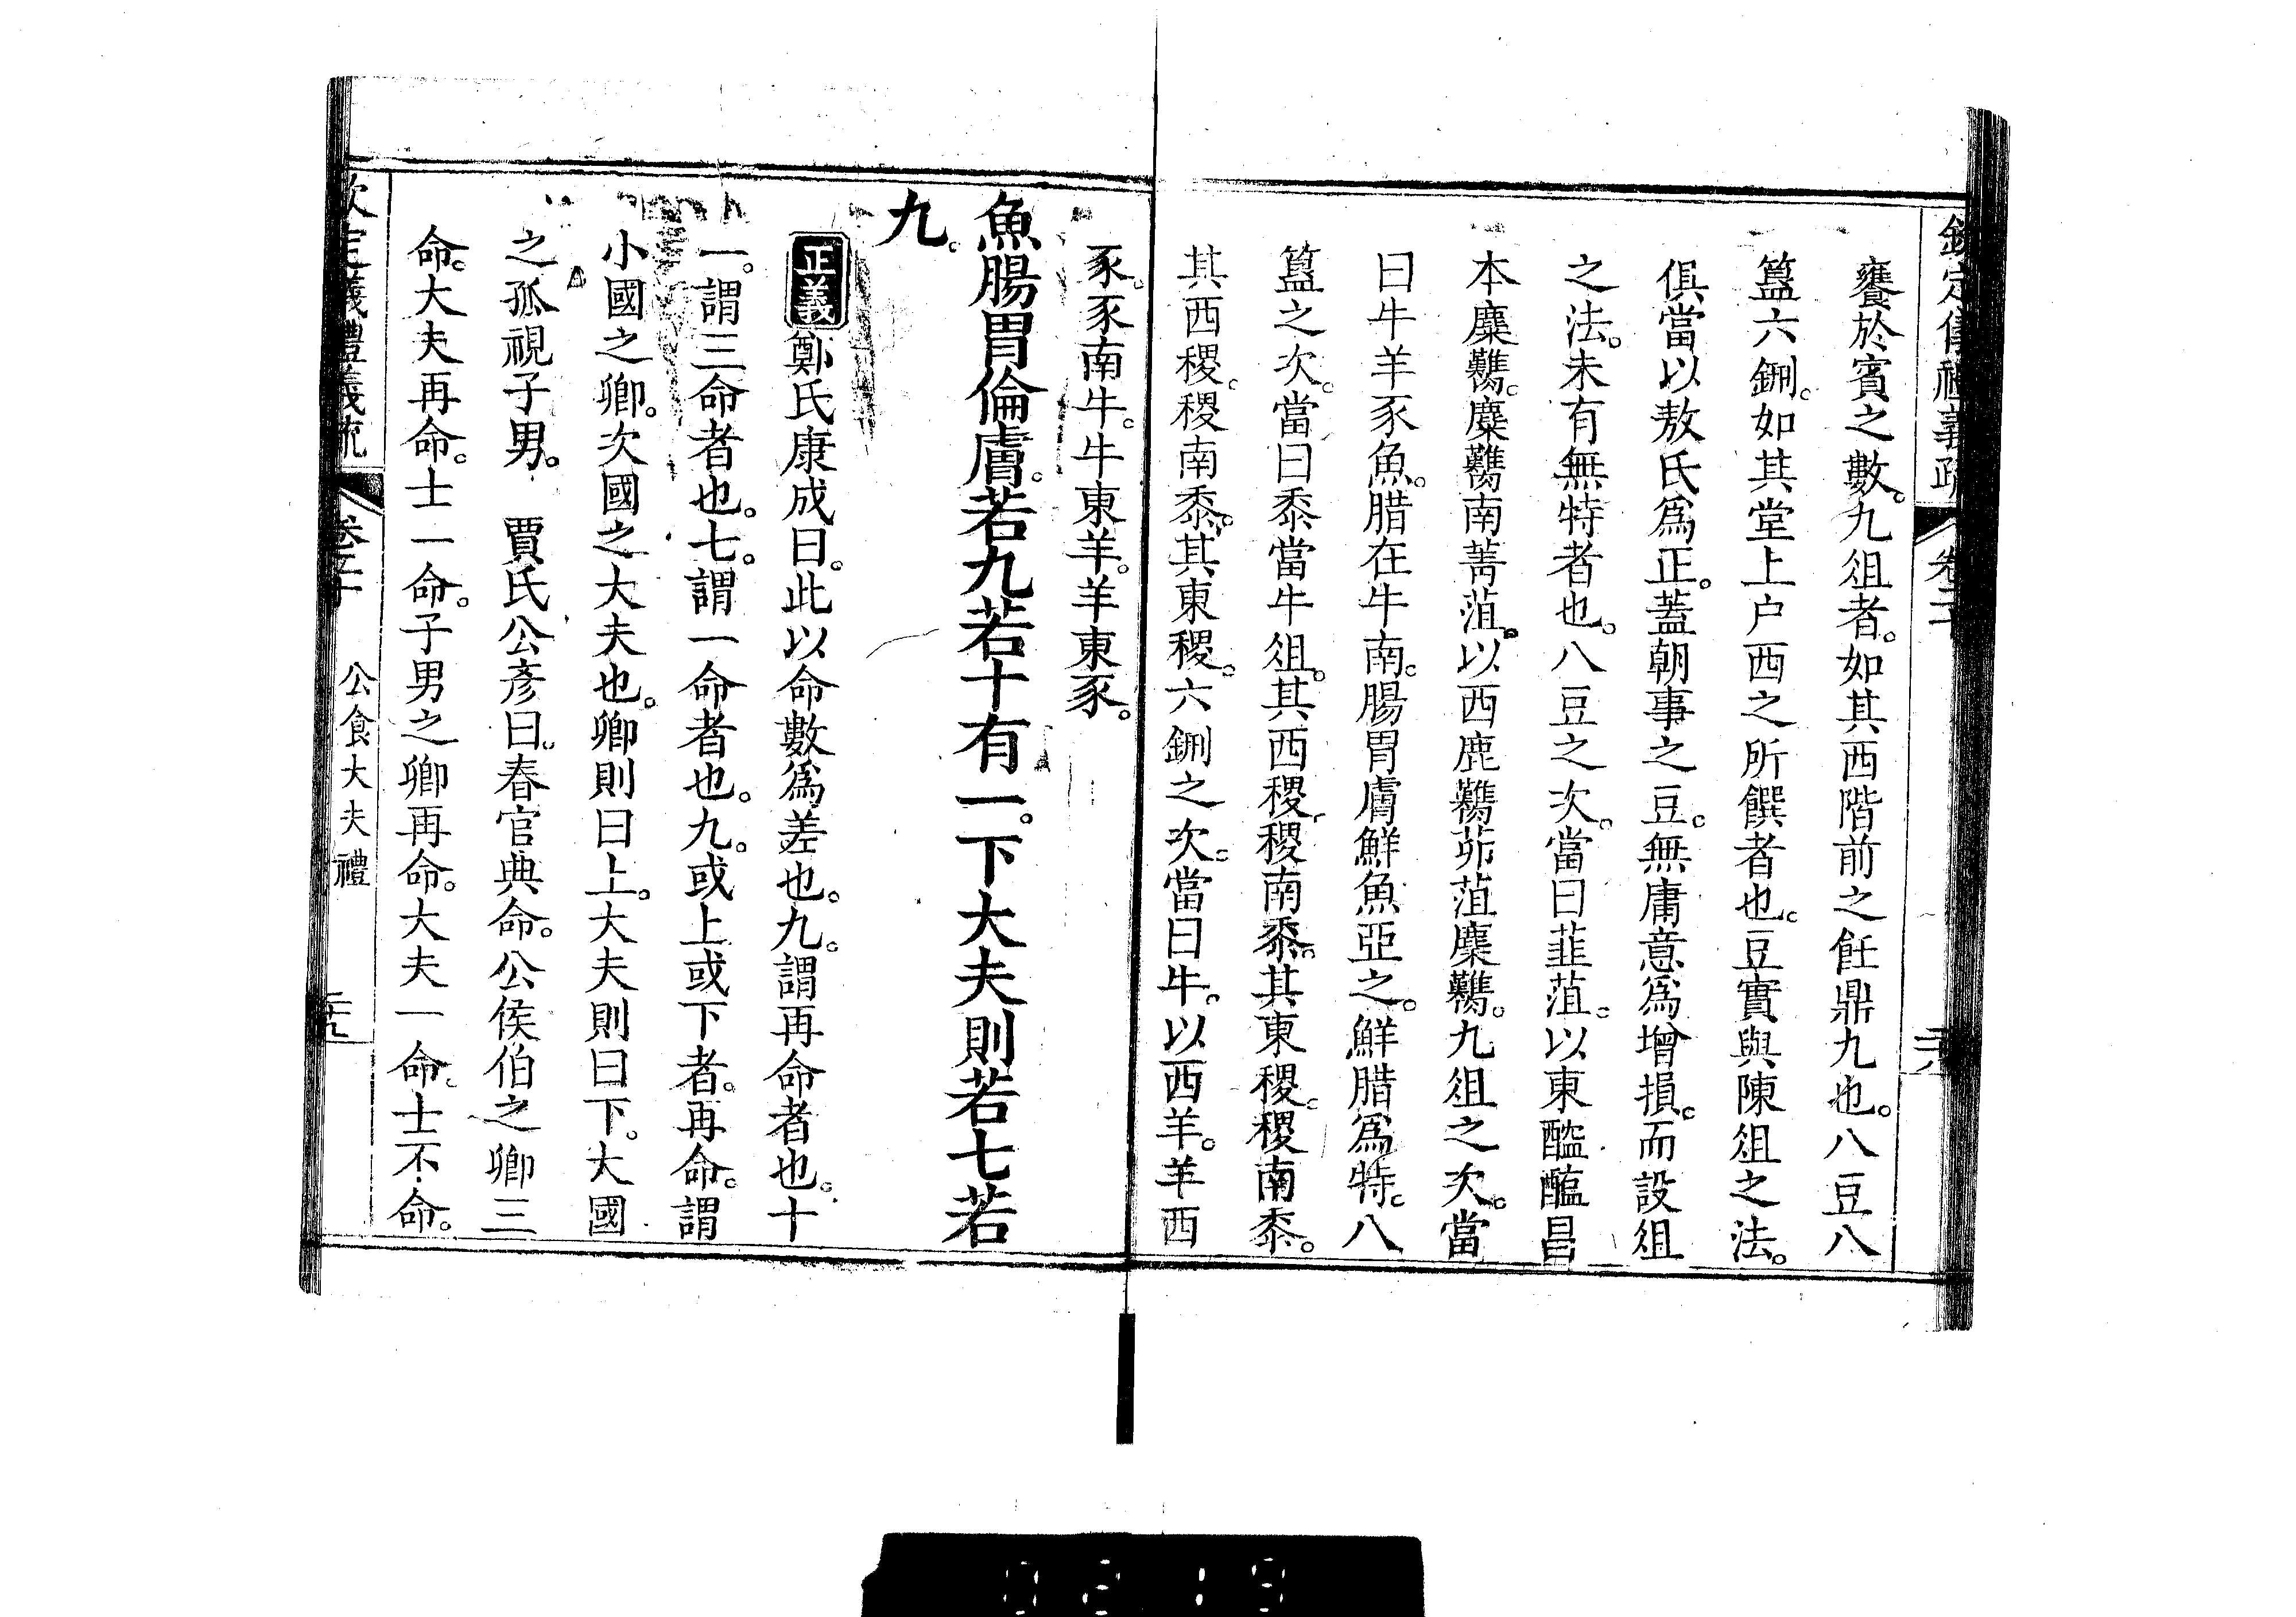 欽定儀禮義疏 卷二十 二十八
饔於賓之數。九俎者。如其西階前之飪鼎九也。八豆八
簋六鉶。如其堂上户西之所饌者也。豆實與陳俎之法。
俱當以敖氏爲正。蓋朝事之豆。無庸意爲增損。而設俎
之法。未有無特者也。八豆之次。當曰韭菹。以東醓醢昌
本麋臡。麋臡南菁菹。以西鹿臡茆菹麇臡。九俎之次。當
曰牛羊豕魚。腊在牛南。腸胃膚鮮魚亞之。鮮腊爲特。八
簋之次。當曰黍當牛俎。其西稷。稷南黍。其東稷。稷南黍。
其西稷。稷南黍。其東稷。六鉶之次。當曰牛。以西羊。羊西
豕。豕南牛。牛東羊。羊東豕。
魚腸胃倫膚。若九若十有一。下大夫則若七若
九。
正義 鄭氏康成曰。此以命數爲差也。九。謂再命者也。十
一。謂三命者也。七。謂一命者也。九。或上或下者。再命。謂
小國之卿。次國之大夫也。卿則曰上。大夫則曰下。大國
之孤視子男。 賈氏公彥曰。春官典命。公侯伯之卿三
命。大夫再命。士一命。子男之卿再命。大夫一命。士不命。
欽定儀禮義疏 卷二十 公食大夫禮 二十九
0219